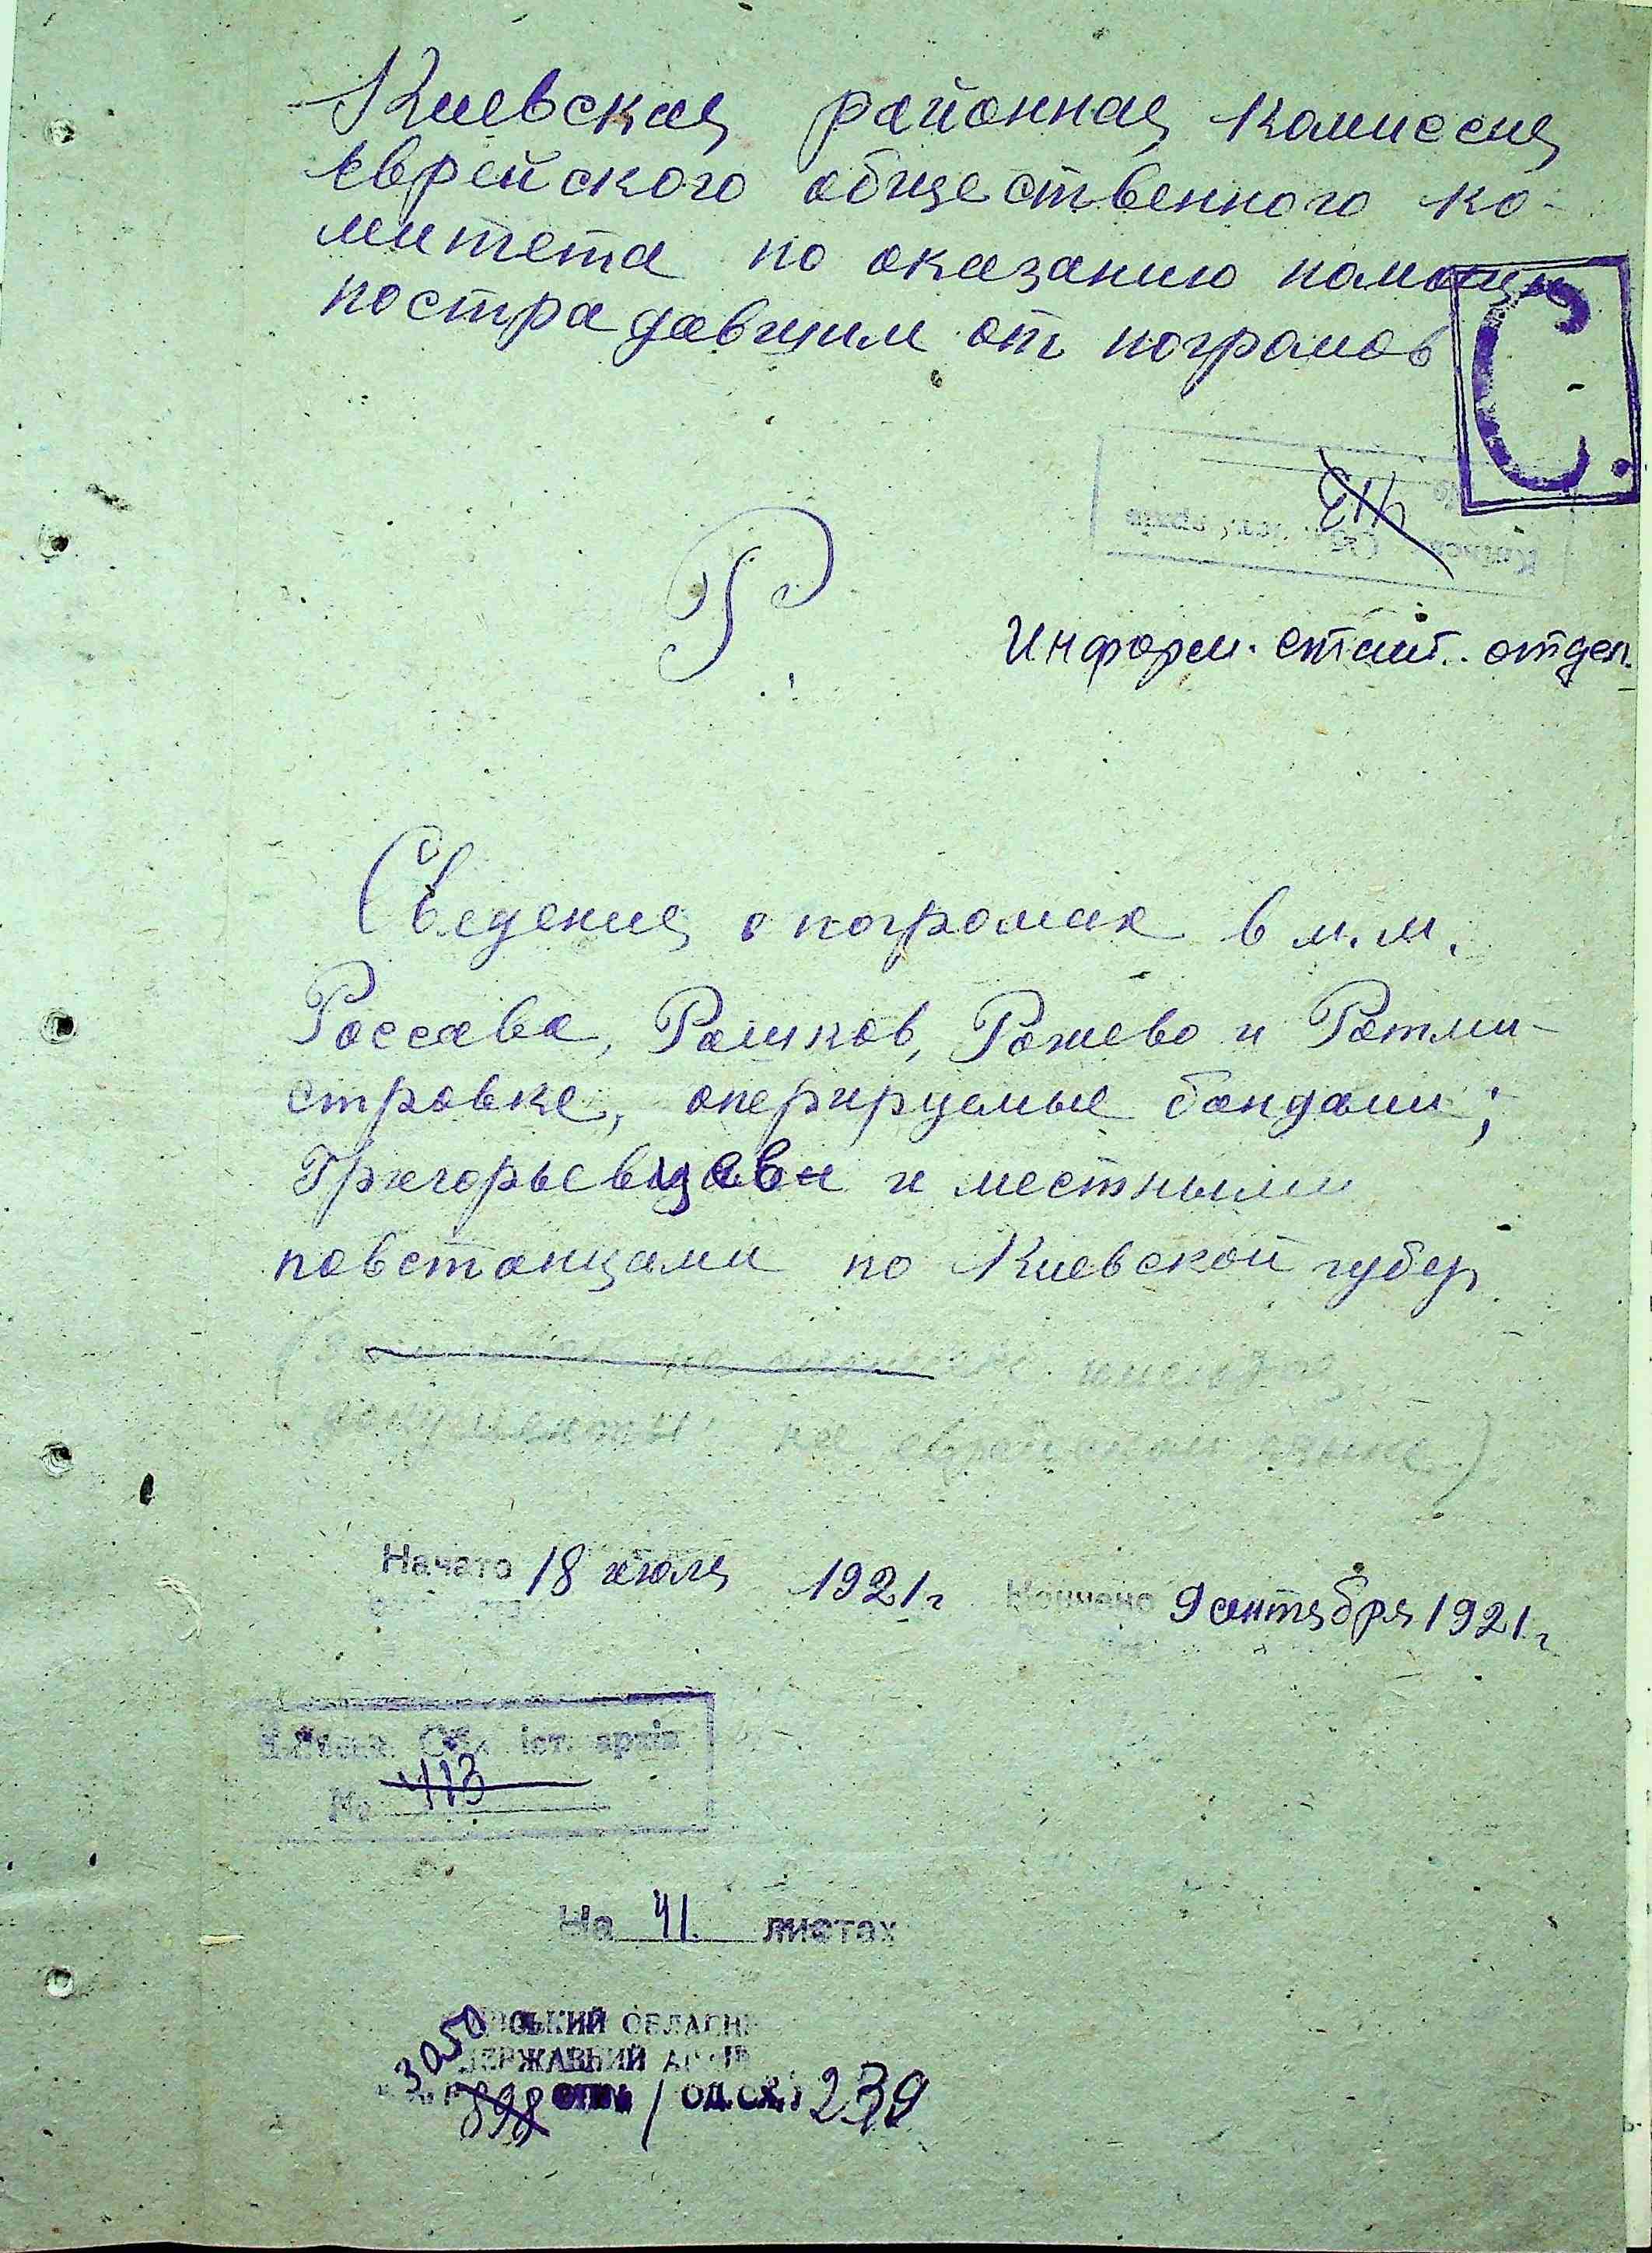 Киевская районная комиссия
Еврейского общественного ко-
митета по оказанию помощи
пострадавшим от погромов
С.
413
Р
Информ. стат. отдел.
Сведения о погромах в м.м.
Россава, Рашков, Рожево и Ротми-
стровке, оперируемые бандами;
Григорьевцеви и местными
повстанцами по Киевской губер
документы на еврейском языке)
Начато 18 июля 1921 г Кончено 9 сентября 1921 г.
іст. архів
№ 413
На 41. листах
ОБЛАСН
3050 ДЕРЖАВНИЙ
898 опис 1 од. сх. 239